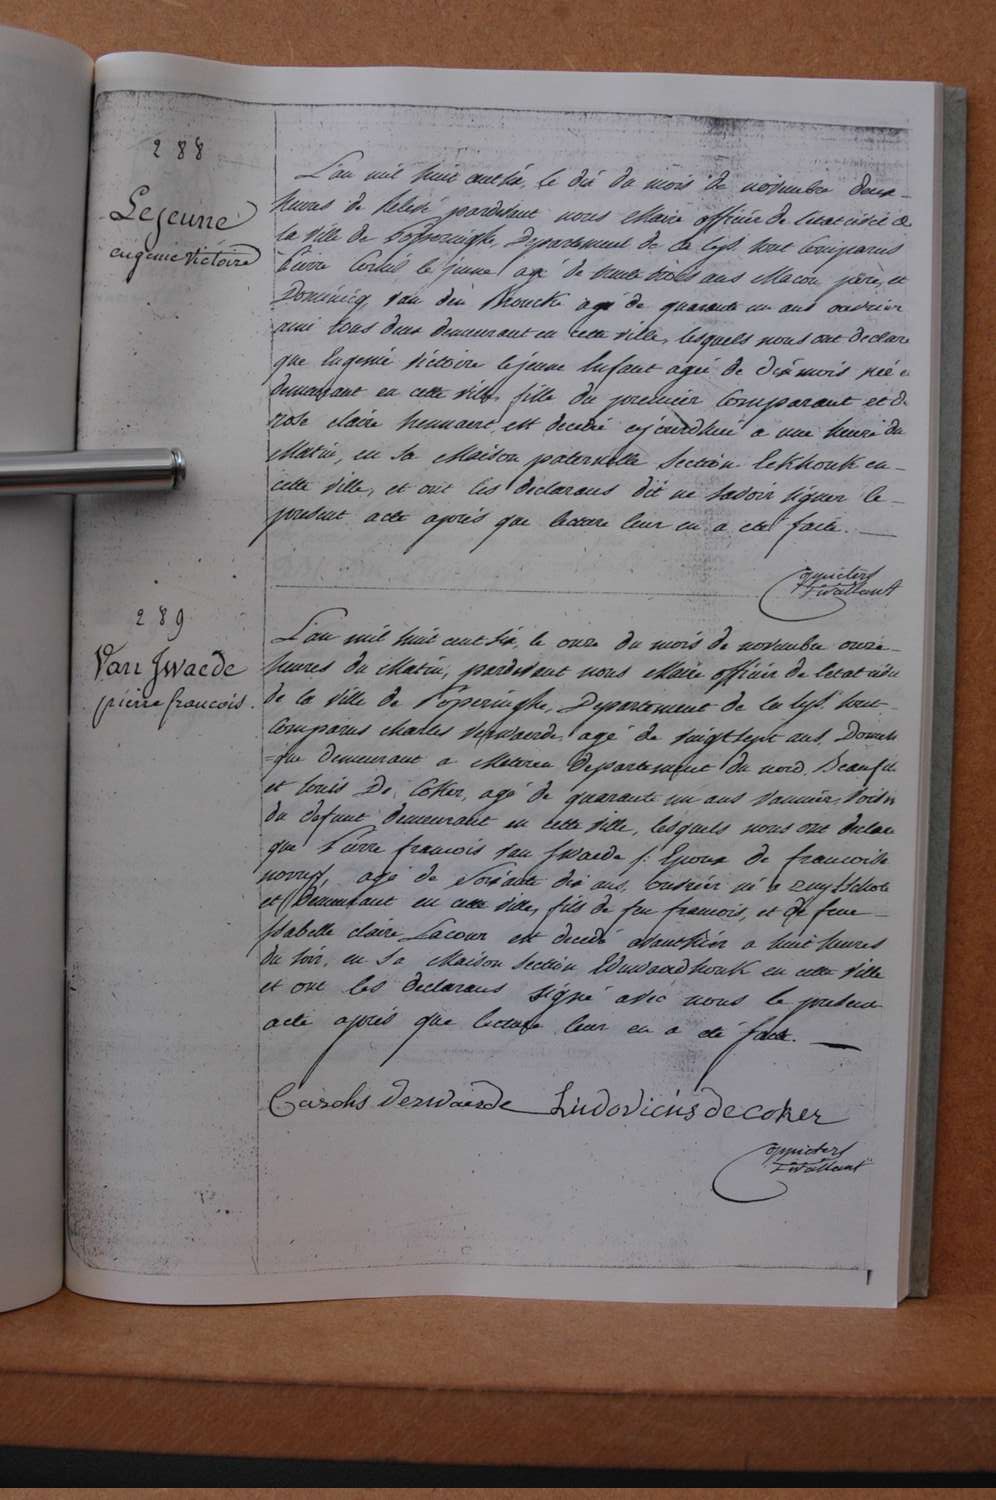 288
Lejeune
eugenie victoire
L'an mil huit cent dix, le dix du mois de novembre deux
heures de Relevé pardevant nous Maire officier de l'état civil de
la ville de Poperinghe, Departement de la Lys, sont comparus
Pierre le jeune agé de trente trois ans Macon, père, et
Dominicq van den Broucke agé de quarante un ans ouvrier
ami tous deux demeurant en cette ville, lesquels nous ont declaré
que Eugenie Victoire lejeune Enfant agée de dix mois née
demeurant en cette ville, fille du premier Comparant et de
rose claire hennaert, est decedé cejourdhui a une heure du
Matin, en sa Maison paternelle Section en
cette ville, et ont les declarans dit ne savoir signer le
present acte après que lecture leur en a eté faite.
289
Van Zwaede
pierre francois.
L'an mil huit cent dix, le onze du mois de novembre onze
heures du Matin, pardevant nous Maire officier de l'etat civil
de la ville de Poperinghe, Departement de la lys, sont
Comparus charles Verwaerde, agé de vingt sept ans, Domesti
=que demeurant a Meteren departement du nord, Beaufils
et Louis De Coker, agé de quarante un ans voisin
du defunt demeurant en cette ville, lesquels nous ont declaré
que Pierre francois van Zwaede Epoux de francoise
agé de soixante dix ans, ouvrier né a
et Demeurant en cette ville, fils de feu francois, et de feue
Isabelle claire Lacour est decedé avanthier a huit heures
du soir, en sa Maison Section en cette ville
et ont les declarans signé avec nous le present
acte après que lecture leur en a eté faite.
Carolus Verwaerde Ludovicus de coker